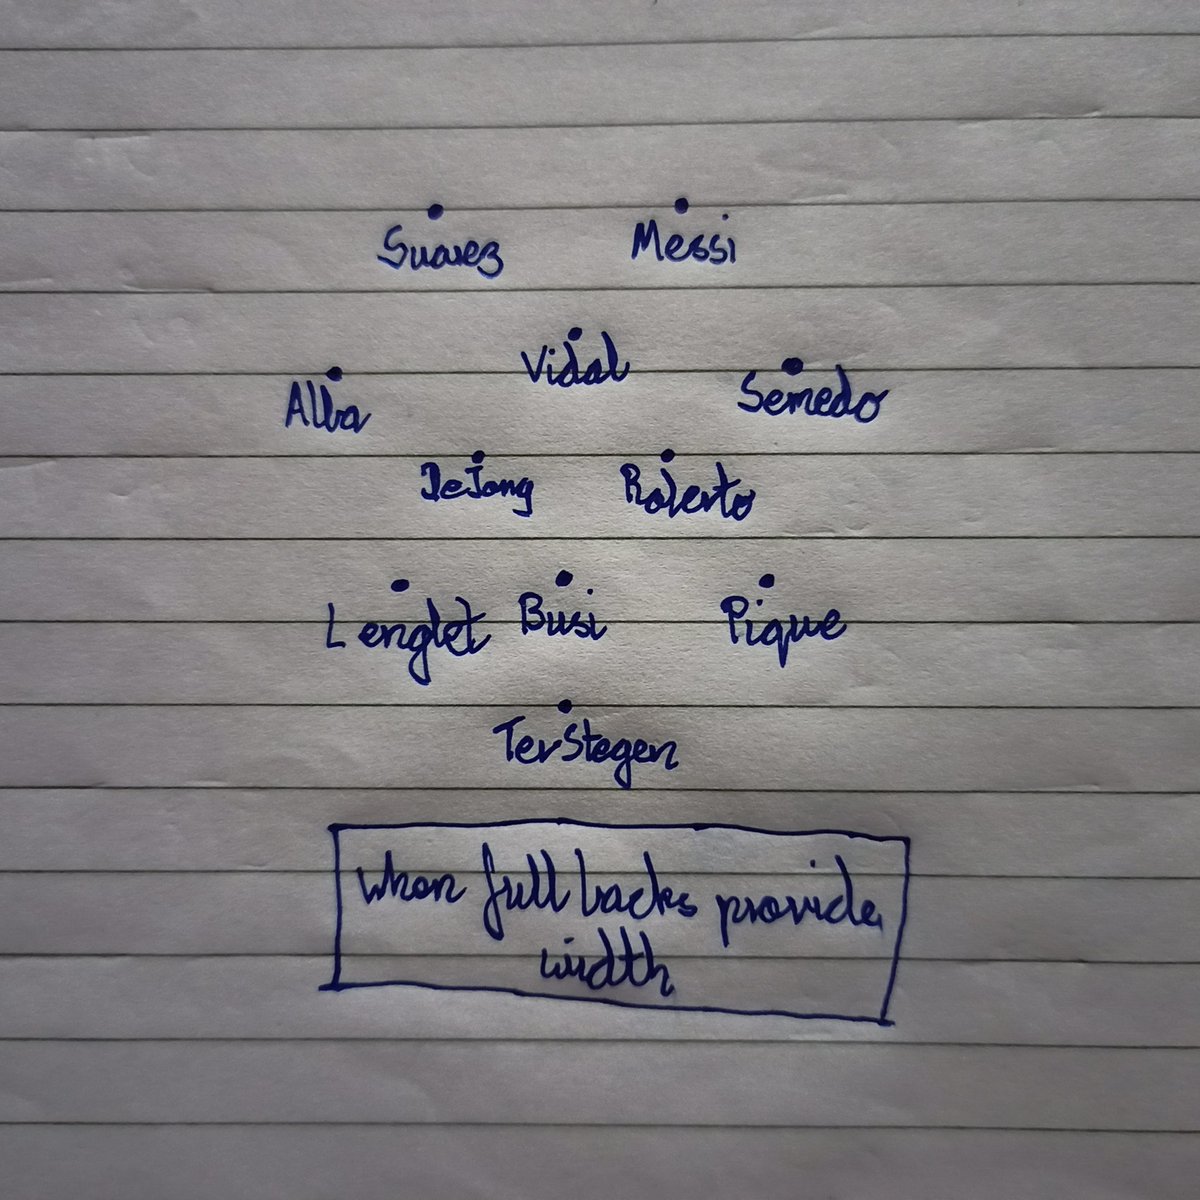 Suarez Messi
Vidal
Alba Semedo
DeJong Roberto
Lenglet Busi Pique
TerStegen
when full backs provide
width